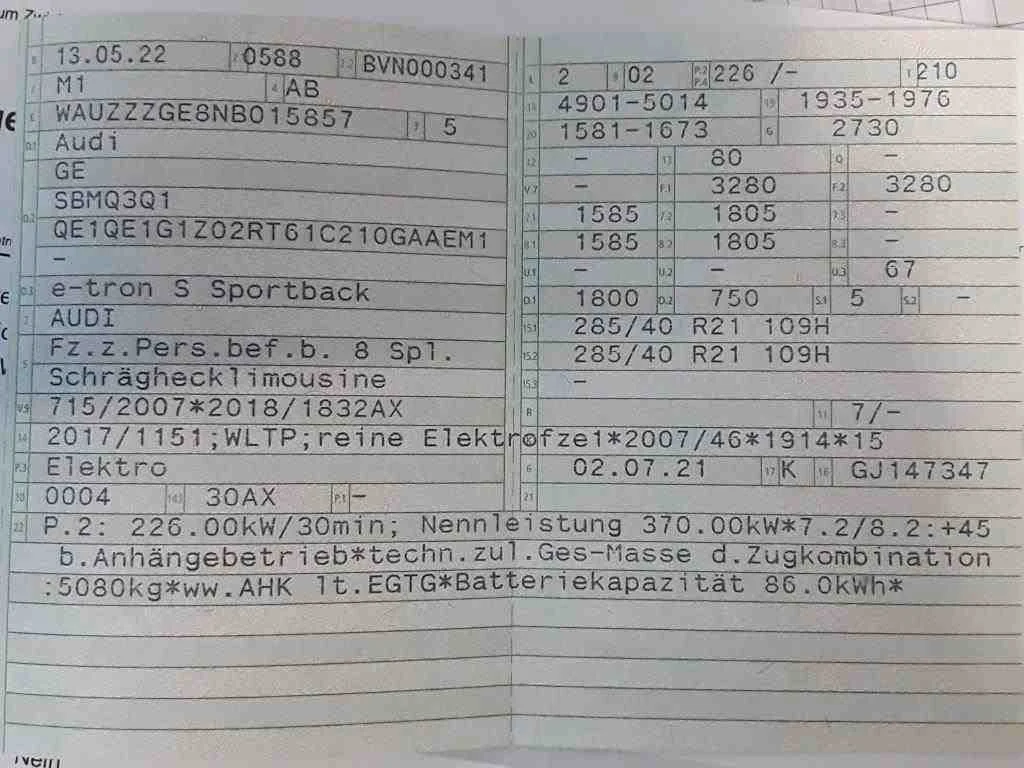 um Zu
B 13.05.22 2 0588 2.2 BVN000341
J M1 4 AB
E WAUZZZGE8NB015857 3 5
D.1 Audi
GE
SBMQ3Q1
D.2 QE1QE1G1Z02RT61C210GAAEM1
–
D.3 e-tron S Sportback
2 AUDI
5 Fz.z.Pers.bef.b. 8 Spl.
Schräghecklimousine
V.9 715/2007*2018/1832AX
14 2017/1151;WLTP;reine Elektrofze1*2007/46*1914*15
P.3 Elektro
10 0004 14.1 30AX P.1 –
L 2 9 02 P.2 P.4 226 /– T 210
18 4901-5014 19 1935-1976
20 1581-1673 G 2730
12 – 13 80 Q –
V.7 – F.1 3280 F.2 3280
7.1 1585 7.2 1805 7.3 –
8.1 1585 8.2 1805 8.3 –
U.1 – U.2 – U.3 67
O.1 1800 O.2 750 S.1 5 S.2 –
15.1 285/40 R21 109H
15.2 285/40 R21 109H
15.3 –
R 11 7/–
6 02.07.21 17 K 16 GJ147347
21
22 P.2: 226.00kW/30min; Nennleistung 370.00kW*7.2/8.2:+45
b.Anhängebetrieb*techn.zul.Ges-Masse d.Zugkombination
:5080kg*ww.AHK lt.EGTG*Batteriekapazität 86.0kWh*
Nein